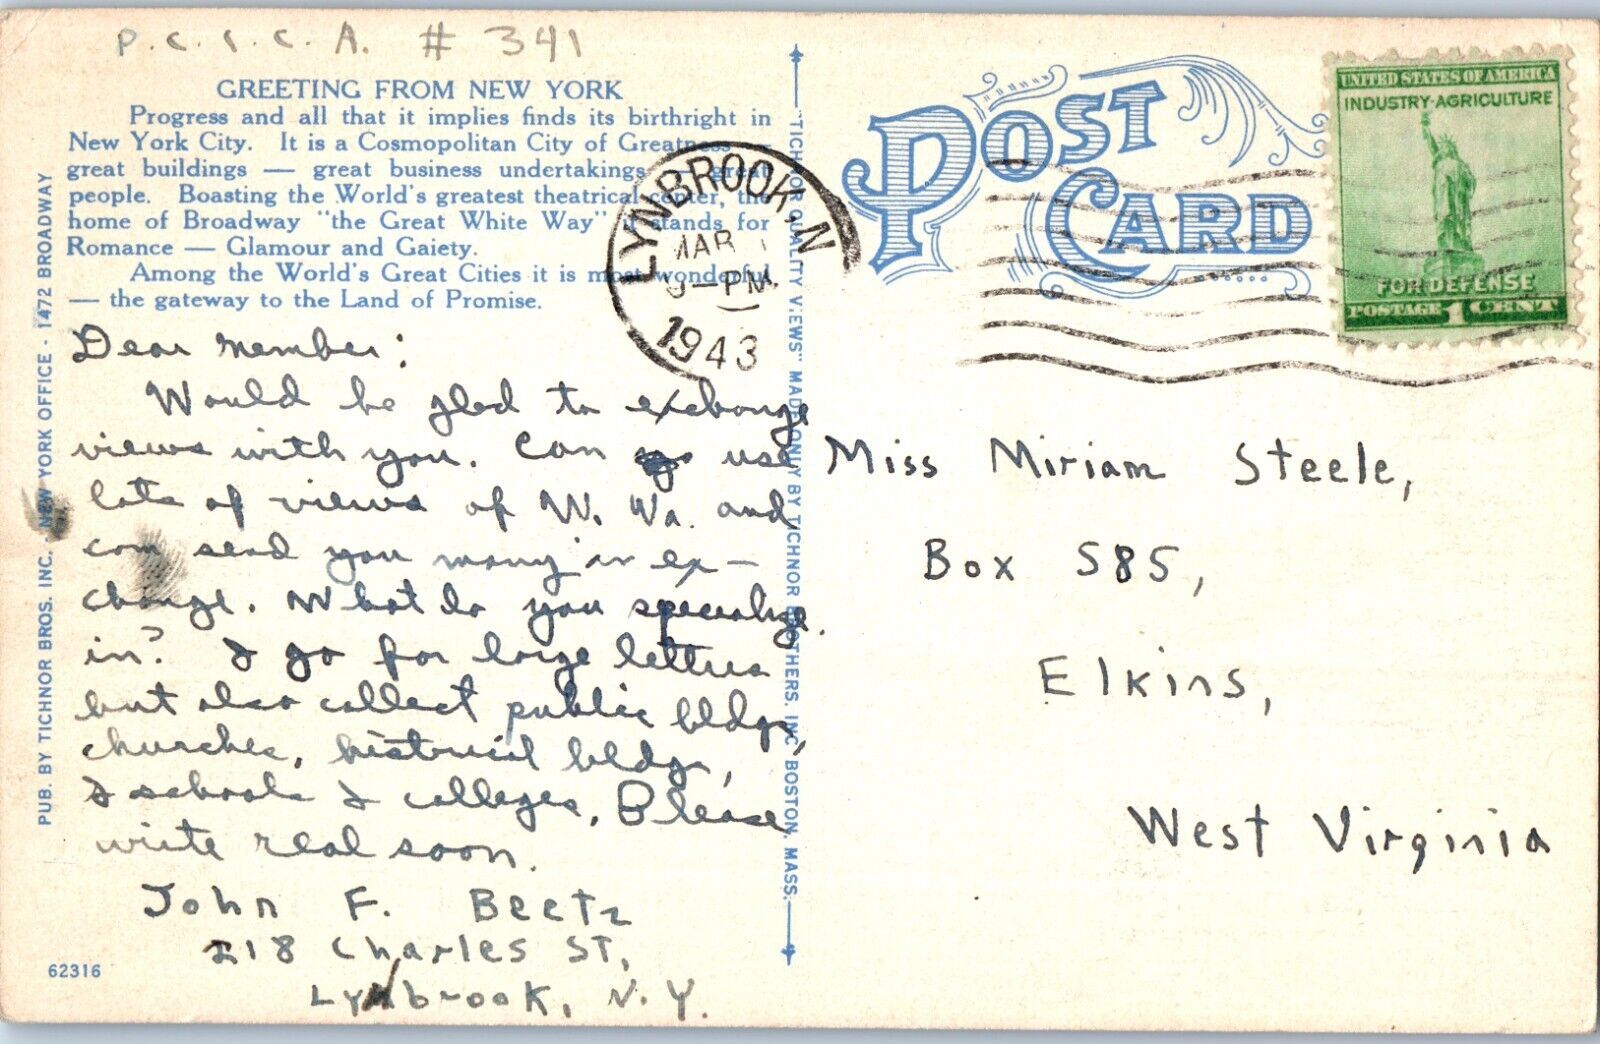 P.C.I.C.A. # 341
GREETING FROM NEW YORK
Progress and all that it implies finds its birthright in
New York City. It is a Cosmopolitan City of Greatness —
great buildings — great business undertakings — great
people. Boasting the World's greatest theatrical center, the
home of Broadway "the Great White Way" it stands for
Romance — Glamour and Gaiety.
Among the World's Great Cities it is most wonderful
— the gateway to the Land of Promise.
Dear member:
Would be glad to exchange
views with you. Can use
lots of views of W. Va. and
can send you many in ex-
change. What do you specialize
in? I go for large letters
but also collect public bldgs,
churches, historical bldgs,
& schools & colleges. Please
write real soon.
John F. Beetz
218 Charles St,
Lynbrook, N.Y.
62316
PUB. BY TICHNOR BROS. INC. - NEW YORK OFFICE - 1472 BROADWAY
"TICHNOR QUALITY VIEWS" MADE ONLY BY TICHNOR BROTHERS, INC. BOSTON, MASS.
LYNBROOK, N
MAR
PM
1943
POST CARD
UNITED STATES OF AMERICA
INDUSTRY-AGRICULTURE
FOR DEFENSE
POSTAGE 1 CENT
Miss Miriam Steele,
Box 585,
Elkins,
West Virginia